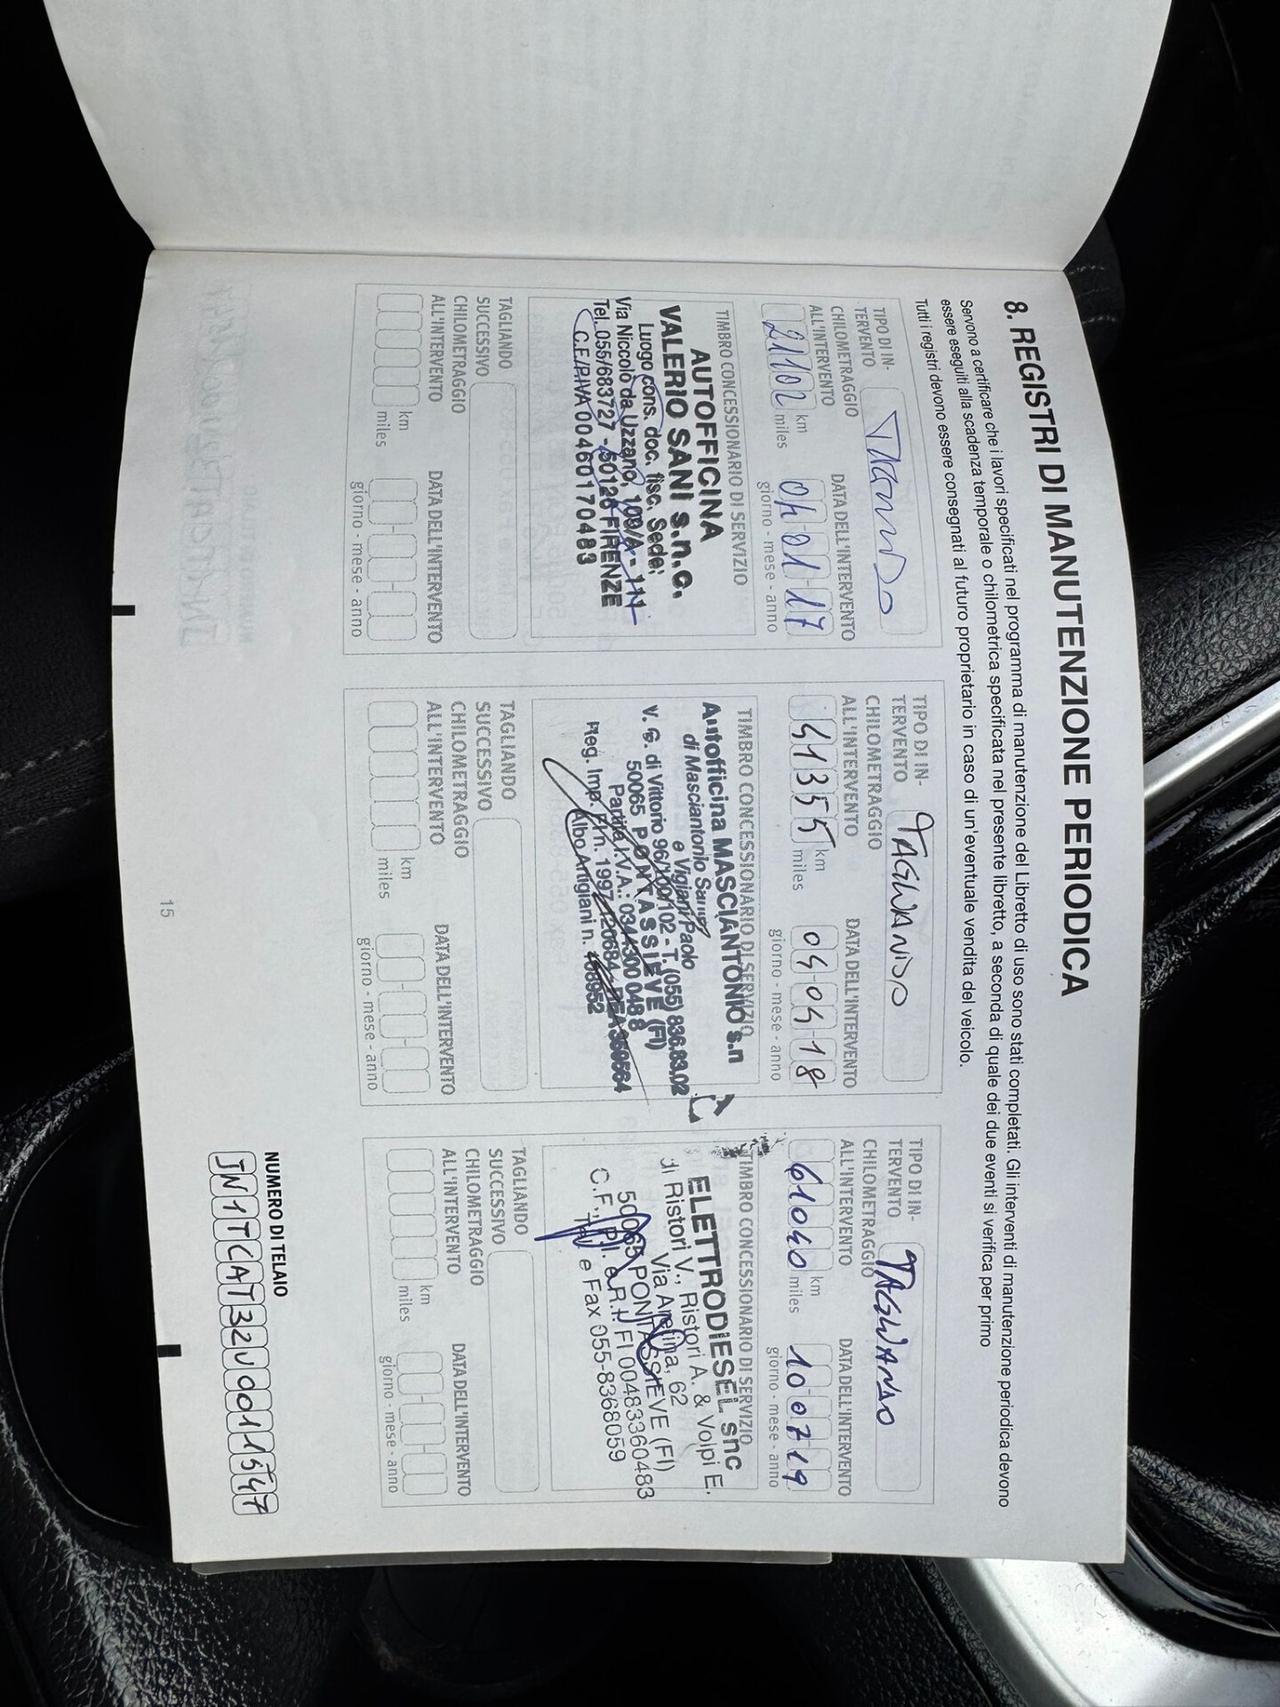 8. REGISTRI DI MANUTENZIONE PERIODICA
Servono a certificare che i lavori specificati nel programma di manutenzione del Libretto di uso sono stati completati. Gli interventi di manutenzione periodica devono
essere eseguiti alla scadenza temporale o chilometrica specificata nel presente libretto, a seconda di quale dei due eventi si verifica per primo
Tutti i registri devono essere consegnati al futuro proprietario in caso di un'eventuale vendita del veicolo.
TIPO DI IN-
TERVENTO
CHILOMETRAGGIO
ALL'INTERVENTO
21102 km
miles
DATA DELL'INTERVENTO
04 01 17
giorno - mese - anno
TIMBRO CONCESSIONARIO DI SERVIZIO
AUTOFFICINA
VALERIO SANI s.n.c.
Luogo cons. doc. fisc. Sede:
Via Niccolò da Uzzano, 109/A - 11
Tel. 055/683727 - 50126 FIRENZE
C.F./P.IVA 00460170483
TAGLIANDO
SUCCESSIVO
CHILOMETRAGGIO
ALL'INTERVENTO
km
miles
DATA DELL'INTERVENTO
giorno - mese - anno
TIPO DI IN-
TERVENTO TAGLIANDO
CHILOMETRAGGIO
ALL'INTERVENTO
41355 km
miles
DATA DELL'INTERVENTO
04-04-18
giorno - mese - anno
TIMBRO CONCESSIONARIO DI SERVIZIO
Autofficina MASCIANTONIO s.n
di Masciantonio
e Vigiani Paolo
V. G. di Vittorio 96/100/102 - T. (055) 836.83.02
50065 PONTASSIEVE (FI)
Partita I.V.A.: 0344300 048 8
Reg. Imp. FI n. 1997
Albo Artigiani n.
TAGLIANDO
SUCCESSIVO
CHILOMETRAGGIO
ALL'INTERVENTO
km
miles
DATA DELL'INTERVENTO
giorno - mese - anno
TIPO DI IN-
TERVENTO TAGLIANDO
CHILOMETRAGGIO
ALL'INTERVENTO
61040 km
miles
DATA DELL'INTERVENTO
10 07 19
giorno - mese - anno
TIMBRO CONCESSIONARIO DI SERVIZIO
ELETTRODIESEL snc
di Ristori V., Ristori A. & Volpi E.
Via Aretina, 62
50065 PONTASSIEVE (FI)
C.F., P.I. e R.I. FI 00483360483
Tel. e Fax 055-8368059
TAGLIANDO
SUCCESSIVO
CHILOMETRAGGIO
ALL'INTERVENTO
km
miles
DATA DELL'INTERVENTO
giorno - mese - anno
NUMERO DI TELAIO
JN1TCAT32U0011547
15